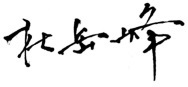 杜岳峰